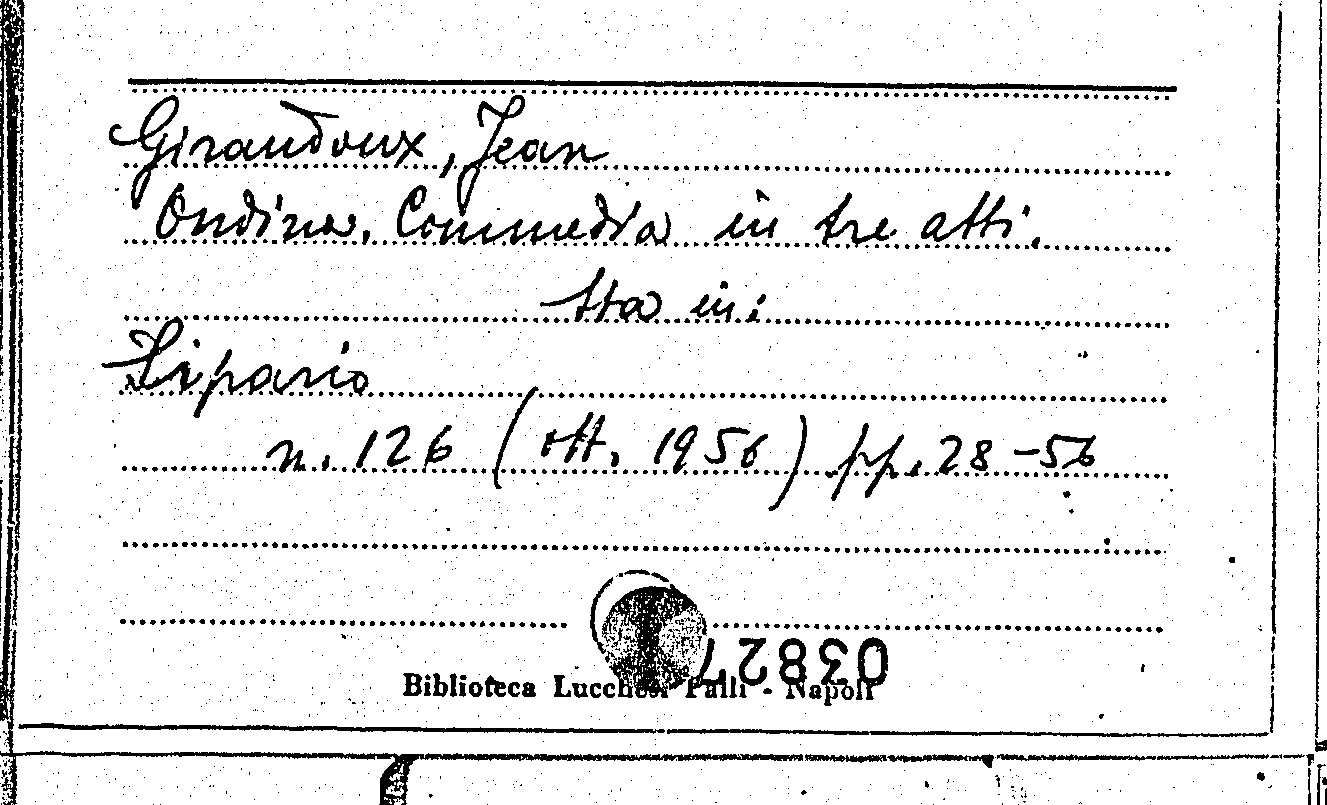 Giraudoux, Jean
Ondina. Commedia in tre atti.
Sta in:
Sipario
n. 126 (ott. 1956) pp. 28-56
03827
Biblioteca Lucchesi Palli - Napoli